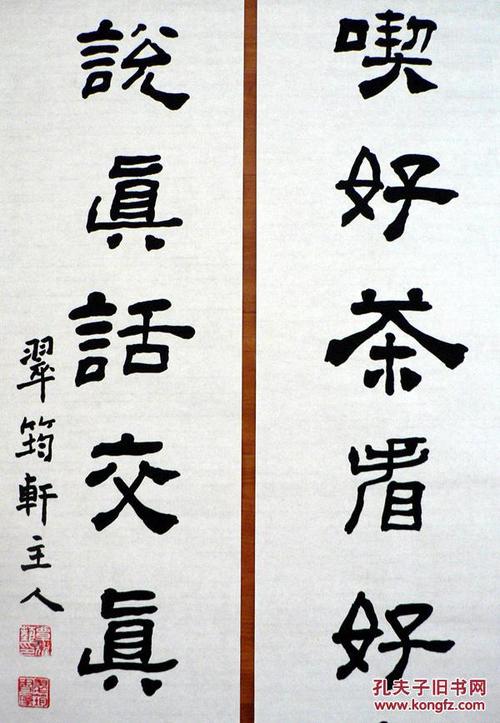 喫好茶看好
說眞話交眞
翠筠軒主人
孔夫子旧书网
www.kongfz.com